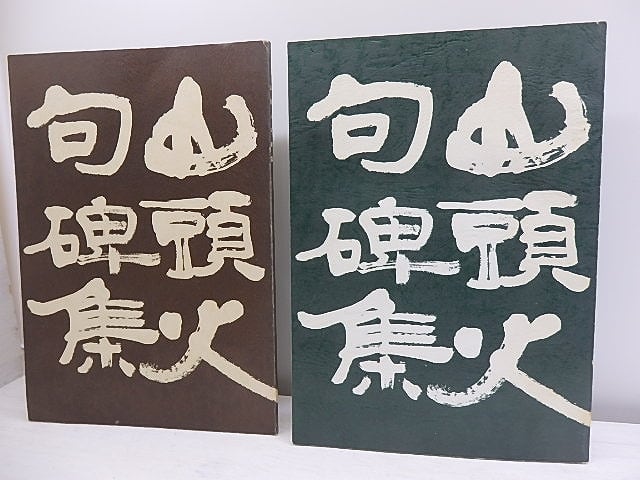 山頭火
句碑集
山頭火
句碑集